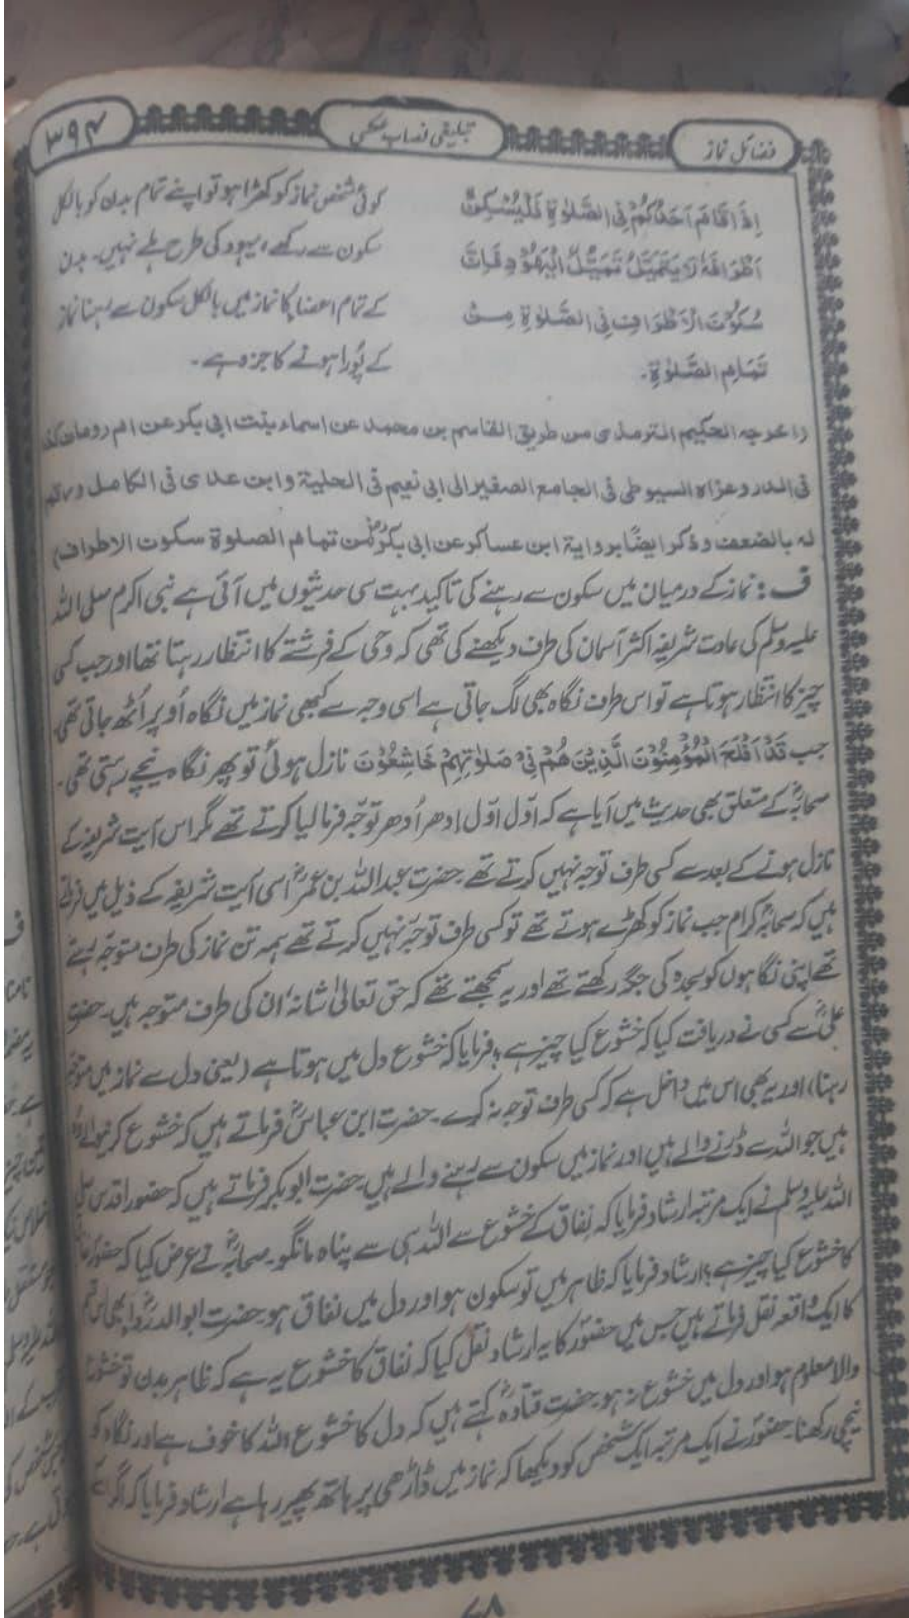 فضائل نماز
تبلیغی نصاب عکسی
۳۹۴
اِذَا قَامَ اَحَدُكُمْ فِی الصَّلٰوةِ فَلْيُسْكِنْ
اَطْرَافَهٗ لَا يَتَمَيَّلُ تَمَيُّلَ الْيَهُوْدِ فَاِنَّ
سُكُوْنَ الْاَطْرَافِ فِی الصَّلٰوةِ مِنْ
تَمَامِ الصَّلٰوةِ۔
کوئی شخص نماز کو کھڑا ہو تو اپنے تمام بدن کو بالکل
سکون سے رکھے، یہود کی طرح ہلے نہیں۔ بدن
کے تمام اعضا کا نماز میں بالکل سکون سے رہنا نماز
کے پورا ہونے کا جزو ہے۔
(اخرجه الحكيم الترمذی من طريق القاسم بن محمد عن اسماء بنت ابی بكر عن ام رومان كذا
فی الدر وعزاه السيوطی فی الجامع الصغير الی ابی نعيم فی الحلية وابن عدی فی الكامل ورقم
له بالضعف وذكر ايضًا برواية ابن عساكر عن ابی بكرؓ من تمام الصلوة سكون الاطراف)
ف: نماز کے درمیان میں سکون سے رہنے کی تاکید بہت سی حدیثوں میں آئی ہے نبی اکرم صلی اللہ
علیہ وسلم کی عادت شریفہ اکثر آسمان کی طرف دیکھنے کی تھی کہ وحی کے فرشتے کا انتظار رہتا تھا اور جب کسی
چیز کا انتظار ہوتا ہے تو اس طرف نگاہ بھی لگ جاتی ہے اسی وجہ سے کبھی نماز میں نگاہ اُوپر اُٹھ جاتی تھی
جب قَدْ اَفْلَحَ الْمُؤْمِنُوْنَ الَّذِيْنَ هُمْ فِیْ صَلٰوتِهِمْ خَاشِعُوْنَ نازل ہوئی تو پھر نگاہ نیچے رہتی تھی۔
صحابہؓ کے متعلق بھی حدیث میں آیا ہے کہ اوّل اوّل اِدھر اُدھر توجّہ فرما لیا کرتے تھے مگر اس آیت شریفہ کے
نازل ہونے کے بعد سے کسی طرف توجہ نہیں کرتے تھے۔ حضرت عبداللہ بن عمرؓ اسی آیت شریفہ کے ذیل میں فرماتے
ہیں کہ صحابہؓ کرام جب نماز کو کھڑے ہوتے تھے تو کسی طرف توجّہ نہیں کرتے تھے ہمہ تن نماز کی طرف متوجہ رہتے
تھے اپنی نگاہوں کو سجدہ کی جگہ رکھتے تھے اور یہ سمجھتے تھے کہ حق تعالیٰ شانہٗ ان کی طرف متوجہ ہیں۔ حضرت
علیؓ سے کسی نے دریافت کیا کہ خشوع کیا چیز ہے؟ فرمایا کہ خشوع دل میں ہوتا ہے (یعنی دل سے نماز میں متوجہ
رہنا) اور یہ بھی اس میں داخل ہے کہ کسی طرف توجہ نہ کرے۔ حضرت ابن عباسؓ فرماتے ہیں کہ خشوع کرنیوالے وہ
ہیں جو اللہ سے ڈرنے والے ہیں اور نماز میں سکون سے رہنے والے ہیں۔ حضرت ابوبکرؓ فرماتے ہیں کہ حضور اقدس صلی
اللہ علیہ وسلم نے ایک مرتبہ ارشاد فرمایا کہ نفاق کے خشوع سے اللہ ہی سے پناہ مانگو۔ صحابہؓ نے عرض کیا کہ حضور نفاق
کا خشوع کیا چیز ہے؟ ارشاد فرمایا کہ ظاہر میں تو سکون ہو اور دل میں نفاق ہو۔ حضرت ابوالدرداءؓ بھی اس قسم
کا ایک واقعہ نقل فرماتے ہیں جس میں حضورؐ کا یہ ارشاد نقل کیا کہ نفاق کا خشوع یہ ہے کہ ظاہر بدن تو خشوع
والا معلوم ہو اور دل میں خشوع نہ ہو۔ حضرت قتادہؓ کہتے ہیں کہ دل کا خشوع اللہ کا خوف ہے اور نگاہ کو
نیچی رکھنا۔ حضورؐ نے ایک مرتبہ ایک شخص کو دیکھا کہ نماز میں ڈاڑھی پر ہاتھ پھیر رہا ہے ارشاد فرمایا کہ اگر